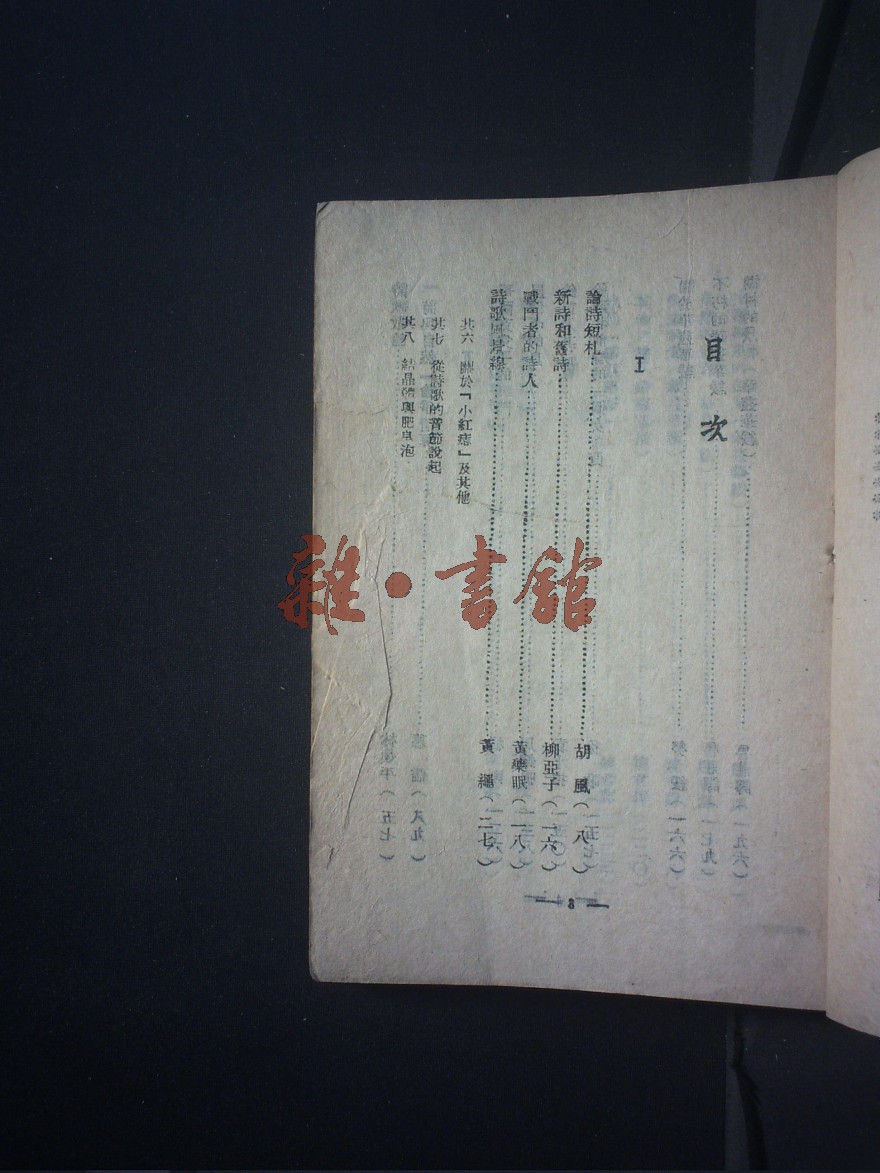 目次
I
論詩短札……胡風(八)
新詩和舊詩……柳亞子(一六)
戰鬥者的詩人……黃藥眠(一八)
詩歌風景線……黃繩(二七)
其六 關於「小紅痣」及其他
其七 從詩歌的音節說起
其八 結晶體與肥皂泡
— 3 —
雜·書館